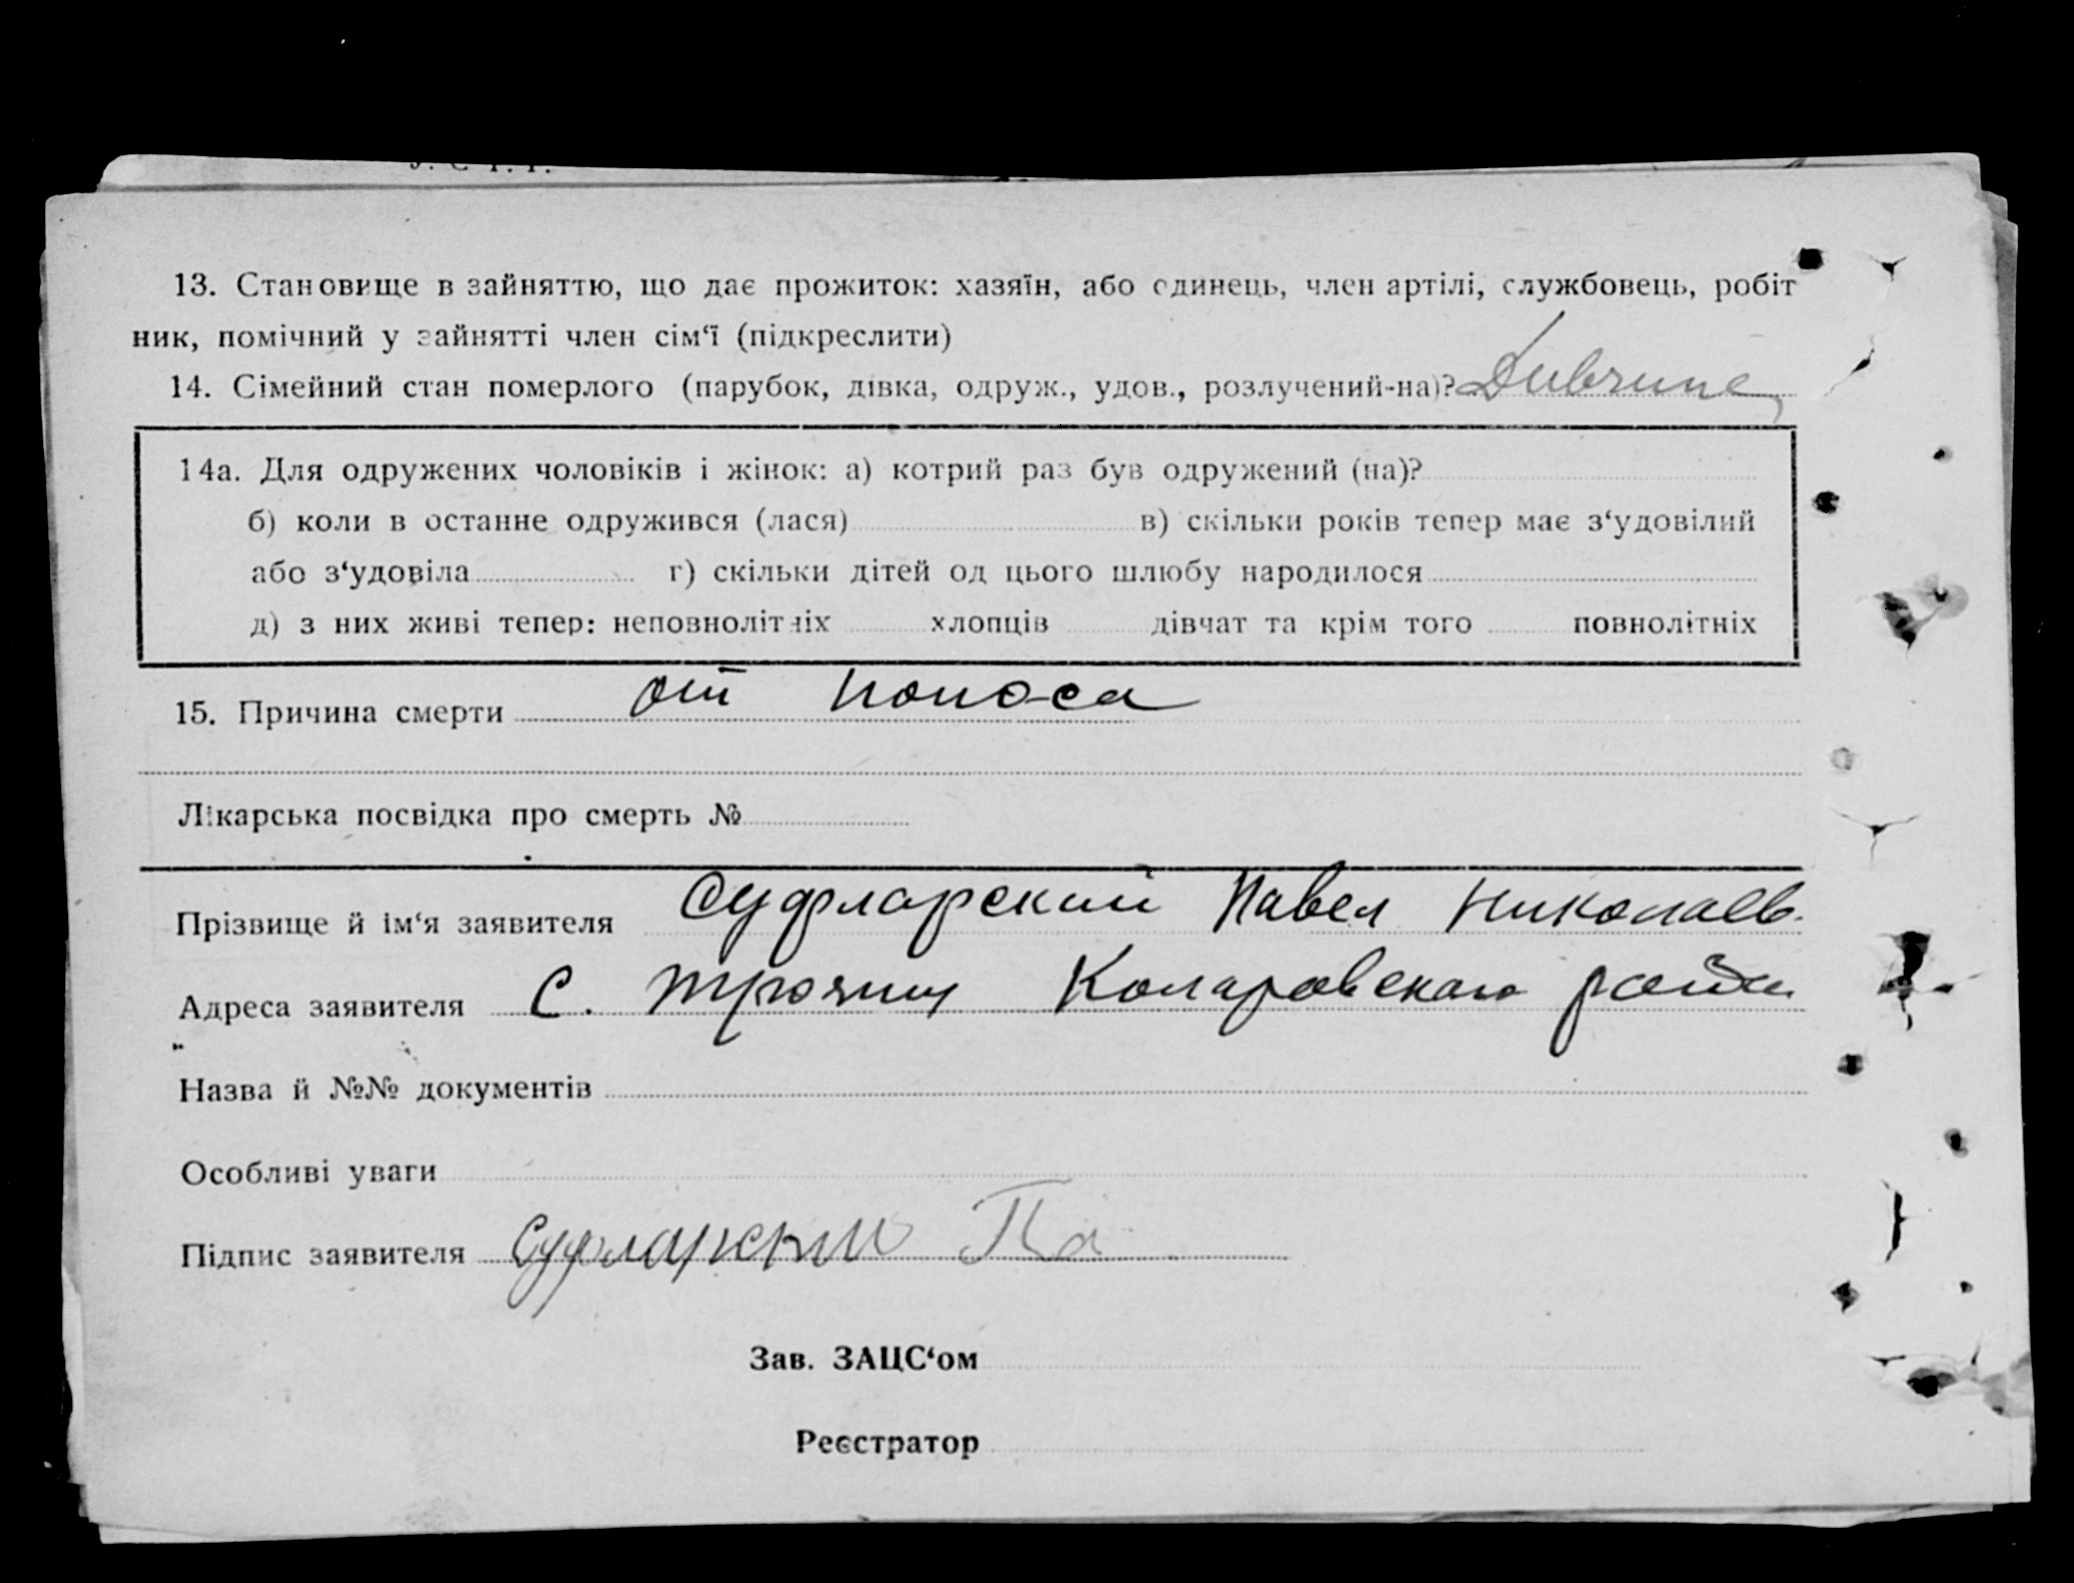 13. Становище в зайняттю, що дає прожиток: хазяїн, або єдинець, член артілі, службовець, робіт
ник, помічний у зайнятті член сім‘ї (підкреслити)
14. Сімейний стан померлого (парубок, дівка, одруж., удов., розлучений-на)?
14а. Для одружених чоловіків і жінок: а) котрий раз був одружений (на)?
б) коли в останне одружився (лася) в) скільки років тепер має з‘удовілий
або з‘удовіла г) скільки дітей од цього шлюбу народилося
д) з них живі тепер: неповнолітніх хлопців дівчат та крім того повнолітніх
15. Причина смерти от поноса
Лікарська посвідка про смерть №
Прізвище й ім‘я заявителя Суфларский Павел Николаев.
Адреса заявителя С. Трояни Коларовского район
Назва й №№ документів
Особливі уваги
Підпис заявителя Суфларский Па
Зав. ЗАЦС‘ом
Реєстратор